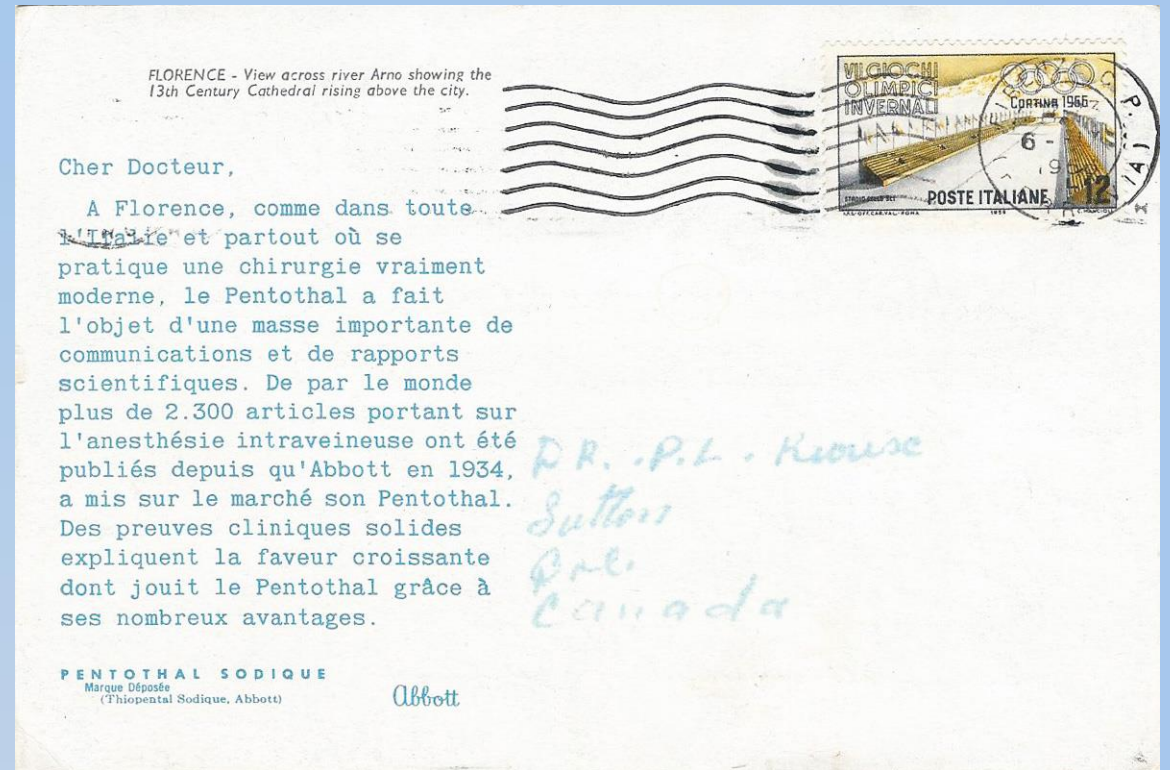 FLORENCE - View across river Arno showing the
13th Century Cathedral rising above the city.
VII GIOCHI
OLIMPICI
INVERNALI
CORTINA 1956
POSTE ITALIANE
12
1956
6 -
Cher Docteur,
A Florence, comme dans toute
l'Italie et partout où se
pratique une chirurgie vraiment
moderne, le Pentothal a fait
l'objet d'une masse importante de
communications et de rapports
scientifiques. De par le monde
plus de 2.300 articles portant sur
l'anesthésie intraveineuse ont été
publiés depuis qu'Abbott en 1934,
a mis sur le marché son Pentothal.
Des preuves cliniques solides
expliquent la faveur croissante
dont jouit le Pentothal grâce à
ses nombreux avantages.
DR. P.L. Krouse
Sutton
Canada
PENTOTHAL SODIQUE
Marque Déposée
(Thiopental Sodique, Abbott)
Abbott